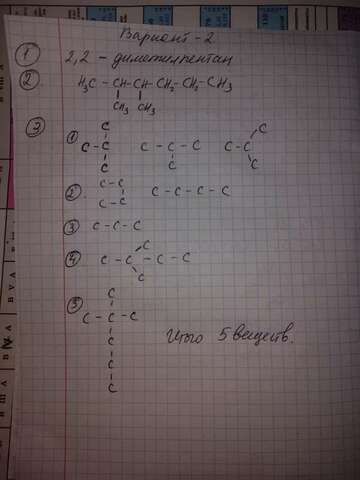 Вариант - 2
① 2,2 - диметилпентан
②. H₃C - CH - CH - CH₂ - CH₂ - CH₃
CH₃ CH₃
③
C
① C - C C - C - C C - C C
C C C
C - C
②. C - C C - C - C - C
③ C - C - C
C
④ C - C - C - C
C
⑤ C
C - C - C
C
C
C
Итого 5 веществ.